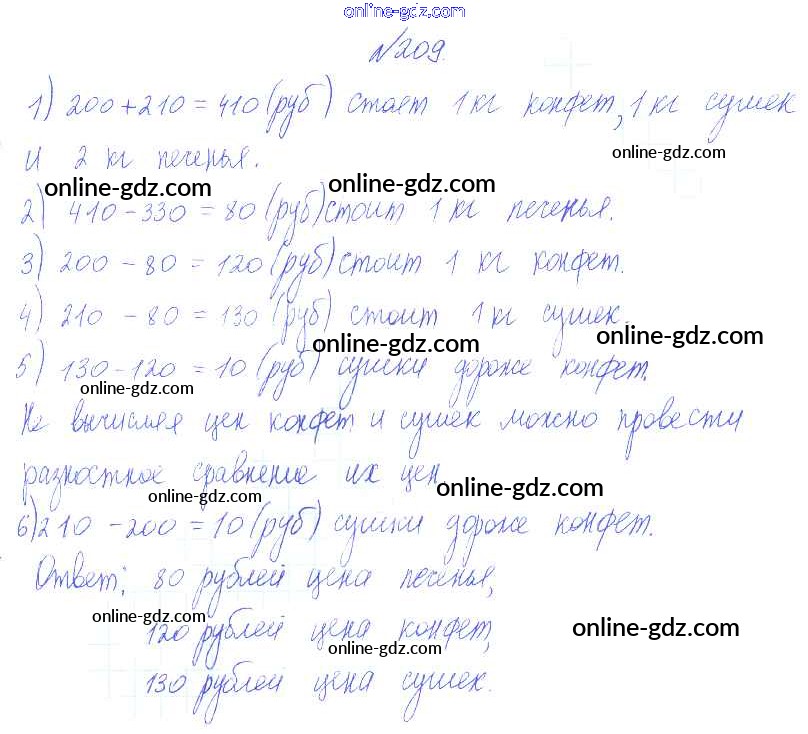 online-gdz.com
№209.
1) 200+210=410 (руб) стоят 1 кг конфет, 1 кг сушек
и 2 кг печенья.
online-gdz.com
online-gdz.com
online-gdz.com
2) 410-330=80 (руб) стоит 1 кг печенья.
3) 200-80=120 (руб) стоит 1 кг конфет.
4) 210-80=130 (руб) стоит 1 кг сушек.
online-gdz.com
online-gdz.com
5) 130-120=10 (руб) сушки дороже конфет.
online-gdz.com
Не вычисляя цен конфет и сушек можно провести
разностное сравнение их цен.
online-gdz.com
online-gdz.com
6) 210-200=10 (руб) сушки дороже конфет.
Ответ: 80 рублей цена печенья,
online-gdz.com
120 рублей цена конфет,
online-gdz.com
online-gdz.com
130 рублей цена сушек.